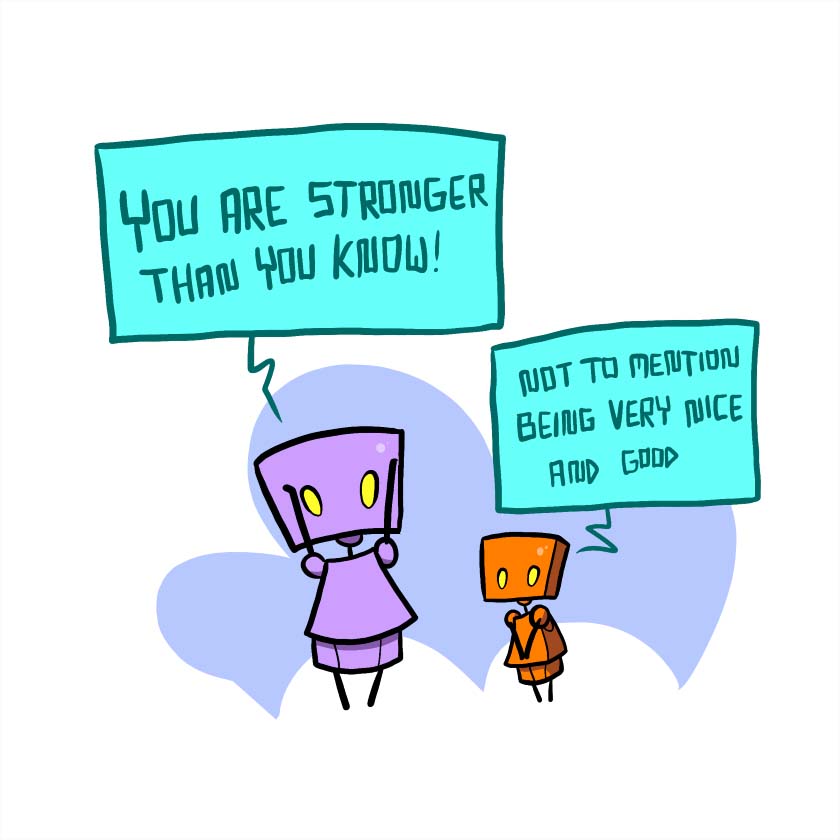 YOU ARE STRONGER
THAN YOU KNOW!
NOT TO MENTION
BEING VERY NICE
AND GOOD